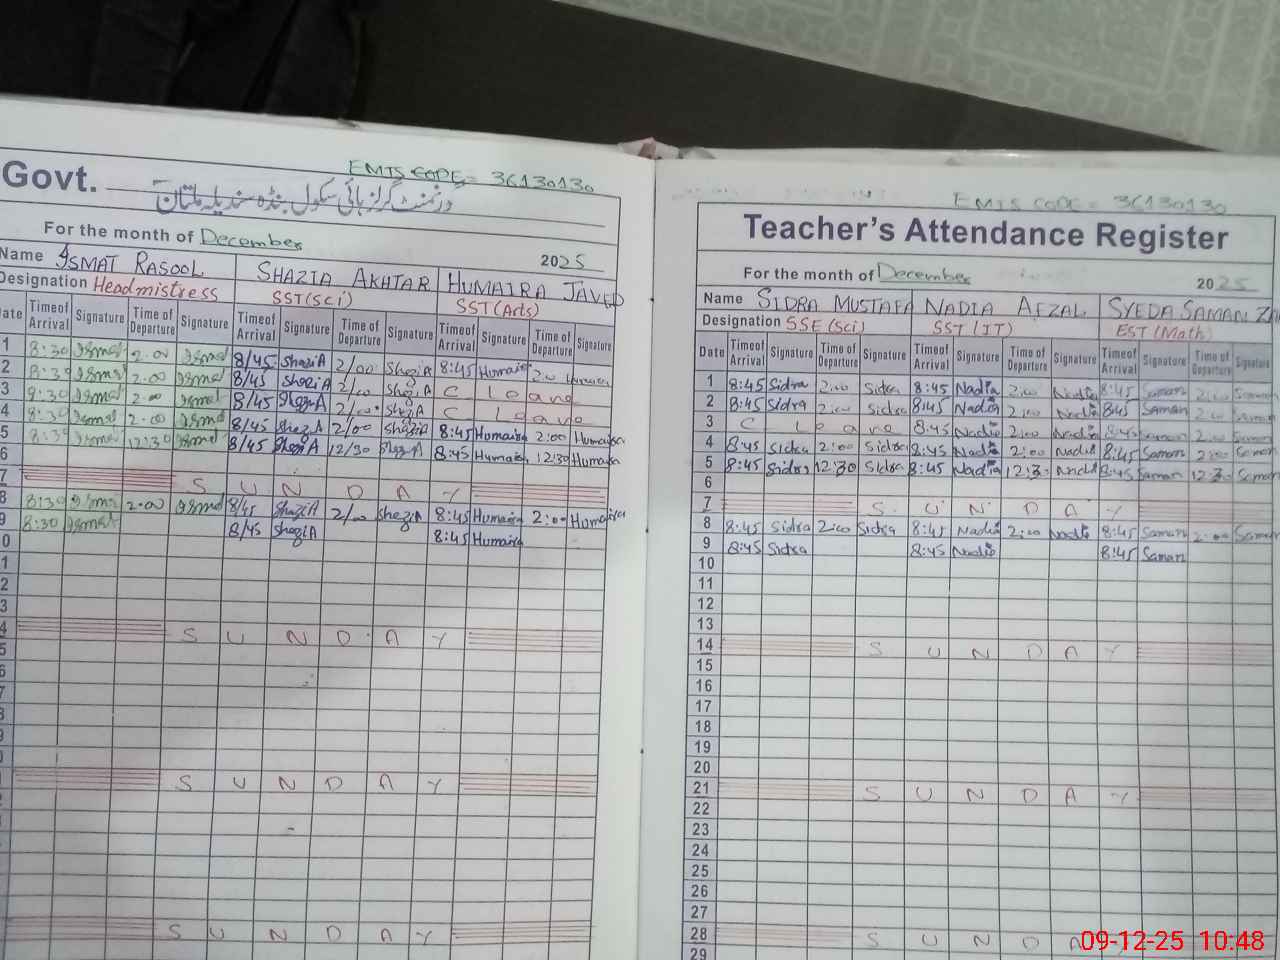 EMIS CODE = 36130130
Govt. گورنمنٹ گرلز ہائی سکول بنڈہ سندیلہ ملتان
For the month of December 2025
Name ISMAT RASOOL SHAZIA AKHTAR HUMAIRA JAVED
Designation Headmistress SST(sci) SST(Arts)
Date Time of Arrival Signature Time of Departure Signature Time of Arrival Signature Time of Departure Signature Time of Arrival Signature Time of Departure Signature
1 8:30 Ismat 2:00 Ismat 8/45 ShaziA 2/00 ShaziA 8:45 Humaira 2:00 Humaira
2 8:30 Ismat 2:00 Ismat 8/45 ShaziA 2/00 ShaziA C Leave
3 8:30 Ismat 2:00 Ismat 8/45 ShaziA 2/00 ShaziA C Leave
4 8:30 Ismat 2:00 Ismat 8/45 ShaziA 2/00 ShaziA 8:45 Humaira 2:00 Humaira
5 8:30 Ismat 12:30 Ismat 8/45 ShaziA 12/30 ShaziA 8:45 Humaira 12:30 Humaira
6
7 S U N D A Y
8 8:30 Ismat 2:00 Ismat 8/45 ShaziA 2/00 ShaziA 8:45 Humaira 2:00 Humaira
9 8:30 Ismat 8/45 ShaziA 8:45 Humaira
0
1
2
3
4 S U N D A Y
5
6
7
8
9
0
1 S U N D A Y
2
S U N D A Y
EMIS CODE = 36130130
Teacher's Attendance Register
For the month of December 2025
Name SIDRA MUSTAFA NADIA AFZAL SYEDA SAMAN ZA
Designation SSE (Sci) SST (IT) EST (Math)
Date Time of Arrival Signature Time of Departure Signature Time of Arrival Signature Time of Departure Signature Time of Arrival Signature Time of Departure Signature
1 8:45 Sidra 2:00 Sidra 8:45 Nadia 2:00 Nadia 8:45 Saman 2:00 Saman
2 8:45 Sidra 2:00 Sidra 8:45 Nadia 2:00 Nadia 8:45 Saman 2:00 Saman
3 C Leave 8:45 Nadia 2:00 Nadia 8:45 Saman 2:00 Saman
4 8:45 Sidra 2:00 Sidra 8:45 Nadia 2:00 Nadia 8:45 Saman 2:00 Saman
5 8:45 Sidra 12:30 Sidra 8:45 Nadia 12:30 Nadia 8:45 Saman 12:30 Saman
6
7 S U N D A Y
8 8:45 Sidra 2:00 Sidra 8:45 Nadia 2:00 Nadia 8:45 Saman 2:00 Saman
9 8:45 Sidra 8:45 Nadia 8:45 Saman
10
11
12
13
14 S U N D A Y
15
16
17
18
19
20
21 S U N D A Y
22
23
24
25
26
27
28 S U N D A
29
09-12-25 10:48